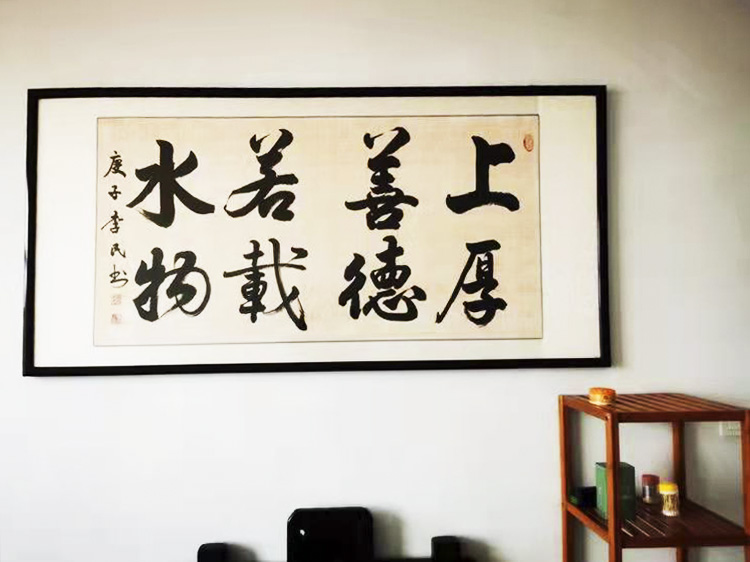 上善若水
厚德載物
庚子李民书